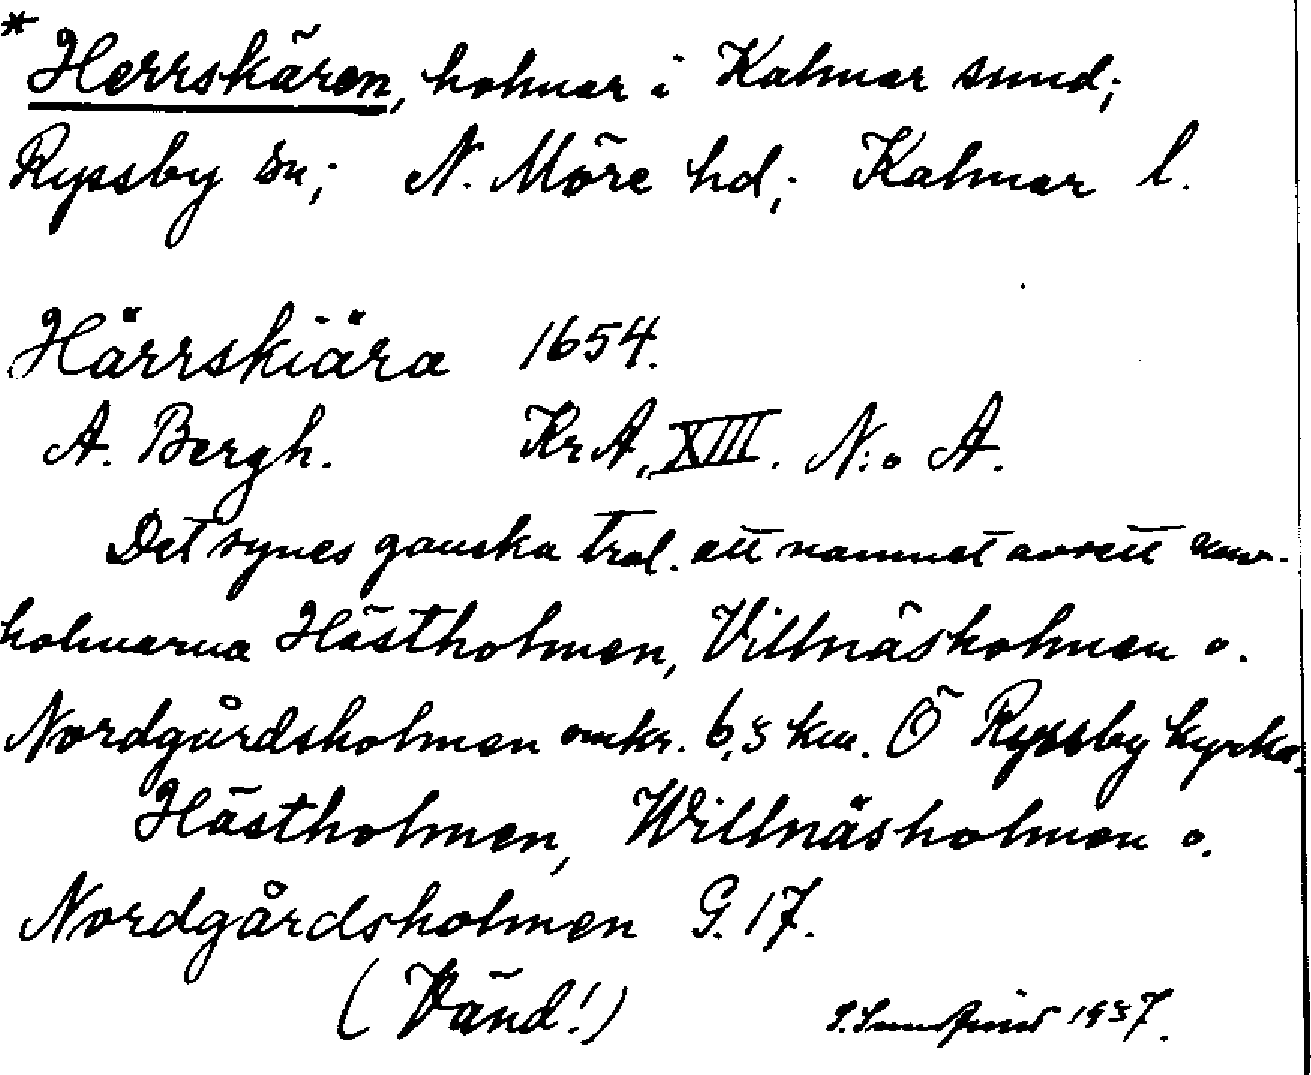 * Herrskären, holmar i Kalmar sund;
Ryssby sn; N. Möre hd; Kalmar l.
Härrskiära 1654.
A. Bergh. KrA, XIII. N:o A.
Det synes ganska trol. att namnet avsett nuv.
holmarna Hästholmen, Villnäsholmen o.
Nordgårdsholmen omkr. 6,5 km. Ö Ryssby kyrka.
Hästholmen, Willnäsholmen o.
Nordgårdsholmen G. 17.
(Vänd!) 1937.